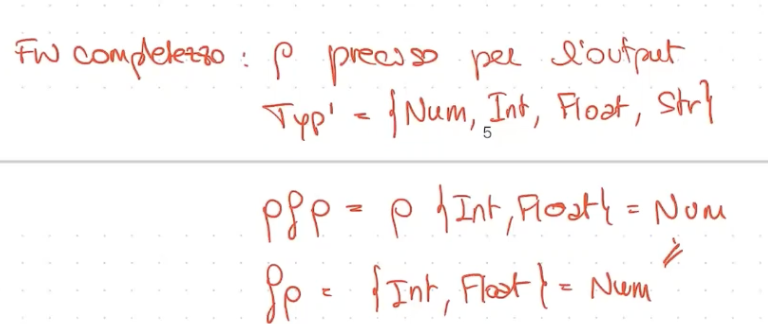 FW completezza : ρ preciso per l'output
Typ' = {Num, Int, Float, Str}
5
ρfρ = ρ {Int, Float} = Num
fρ = {Int, Float} = Num